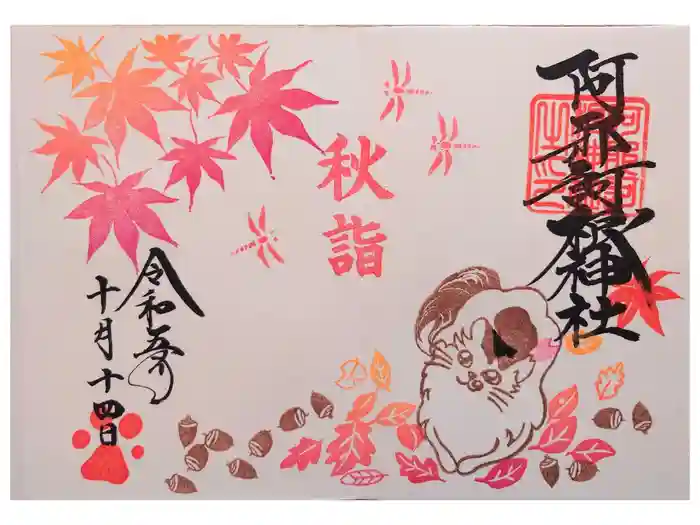 阿邪訶根神社
秋詣
令和五年
十月十四日